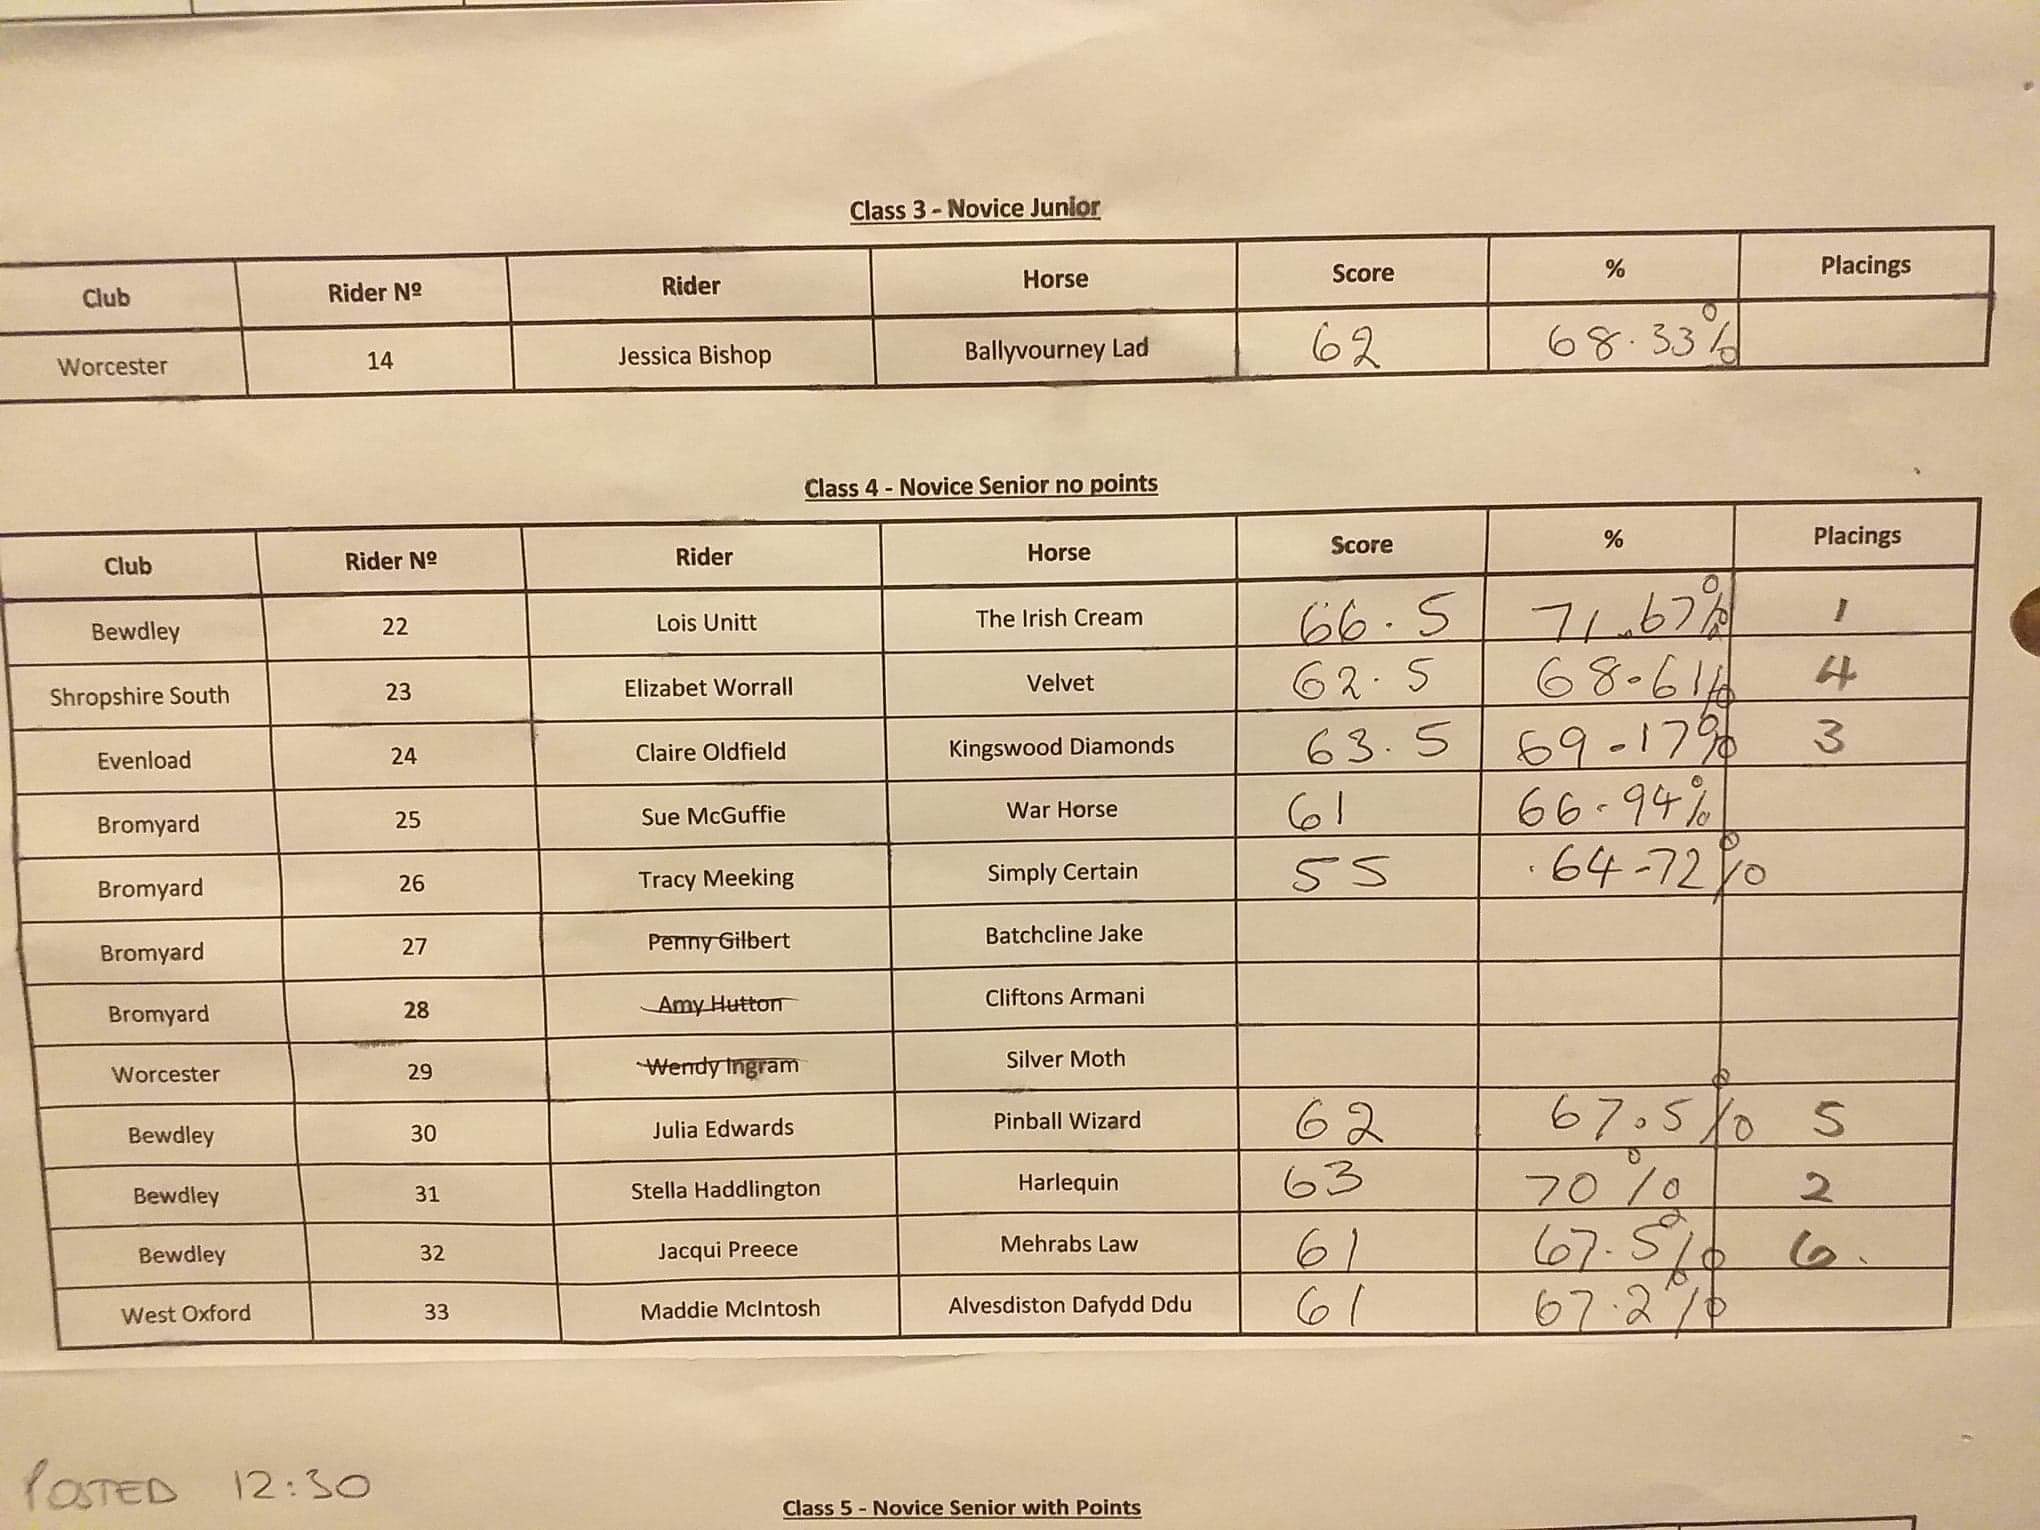 Class 3 - Novice Junior
Club Rider Nº Rider Horse Score % Placings
Worcester 14 Jessica Bishop Ballyvourney Lad 62 68.33%
Class 4 - Novice Senior no points
Club Rider Nº Rider Horse Score % Placings
Bewdley 22 Lois Unitt The Irish Cream 66.5 71.67% 1
Shropshire South 23 Elizabet Worrall Velvet 62.5 68.61% 4
Evenload 24 Claire Oldfield Kingswood Diamonds 63.5 69.17% 3
Bromyard 25 Sue McGuffie War Horse 61 66.94%
Bromyard 26 Tracy Meeking Simply Certain 55 64.72%
Bromyard 27 Penny Gilbert Batchcline Jake
Bromyard 28 Amy Hutton Cliftons Armani
Worcester 29 Wendy Ingram Silver Moth
Bewdley 30 Julia Edwards Pinball Wizard 62 67.5% 5
Bewdley 31 Stella Haddlington Harlequin 63 70% 2
Bewdley 32 Jacqui Preece Mehrabs Law 61 67.5% 6.
West Oxford 33 Maddie McIntosh Alvesdiston Dafydd Ddu 61 67.2%
POSTED 12:30
Class 5 - Novice Senior with Points